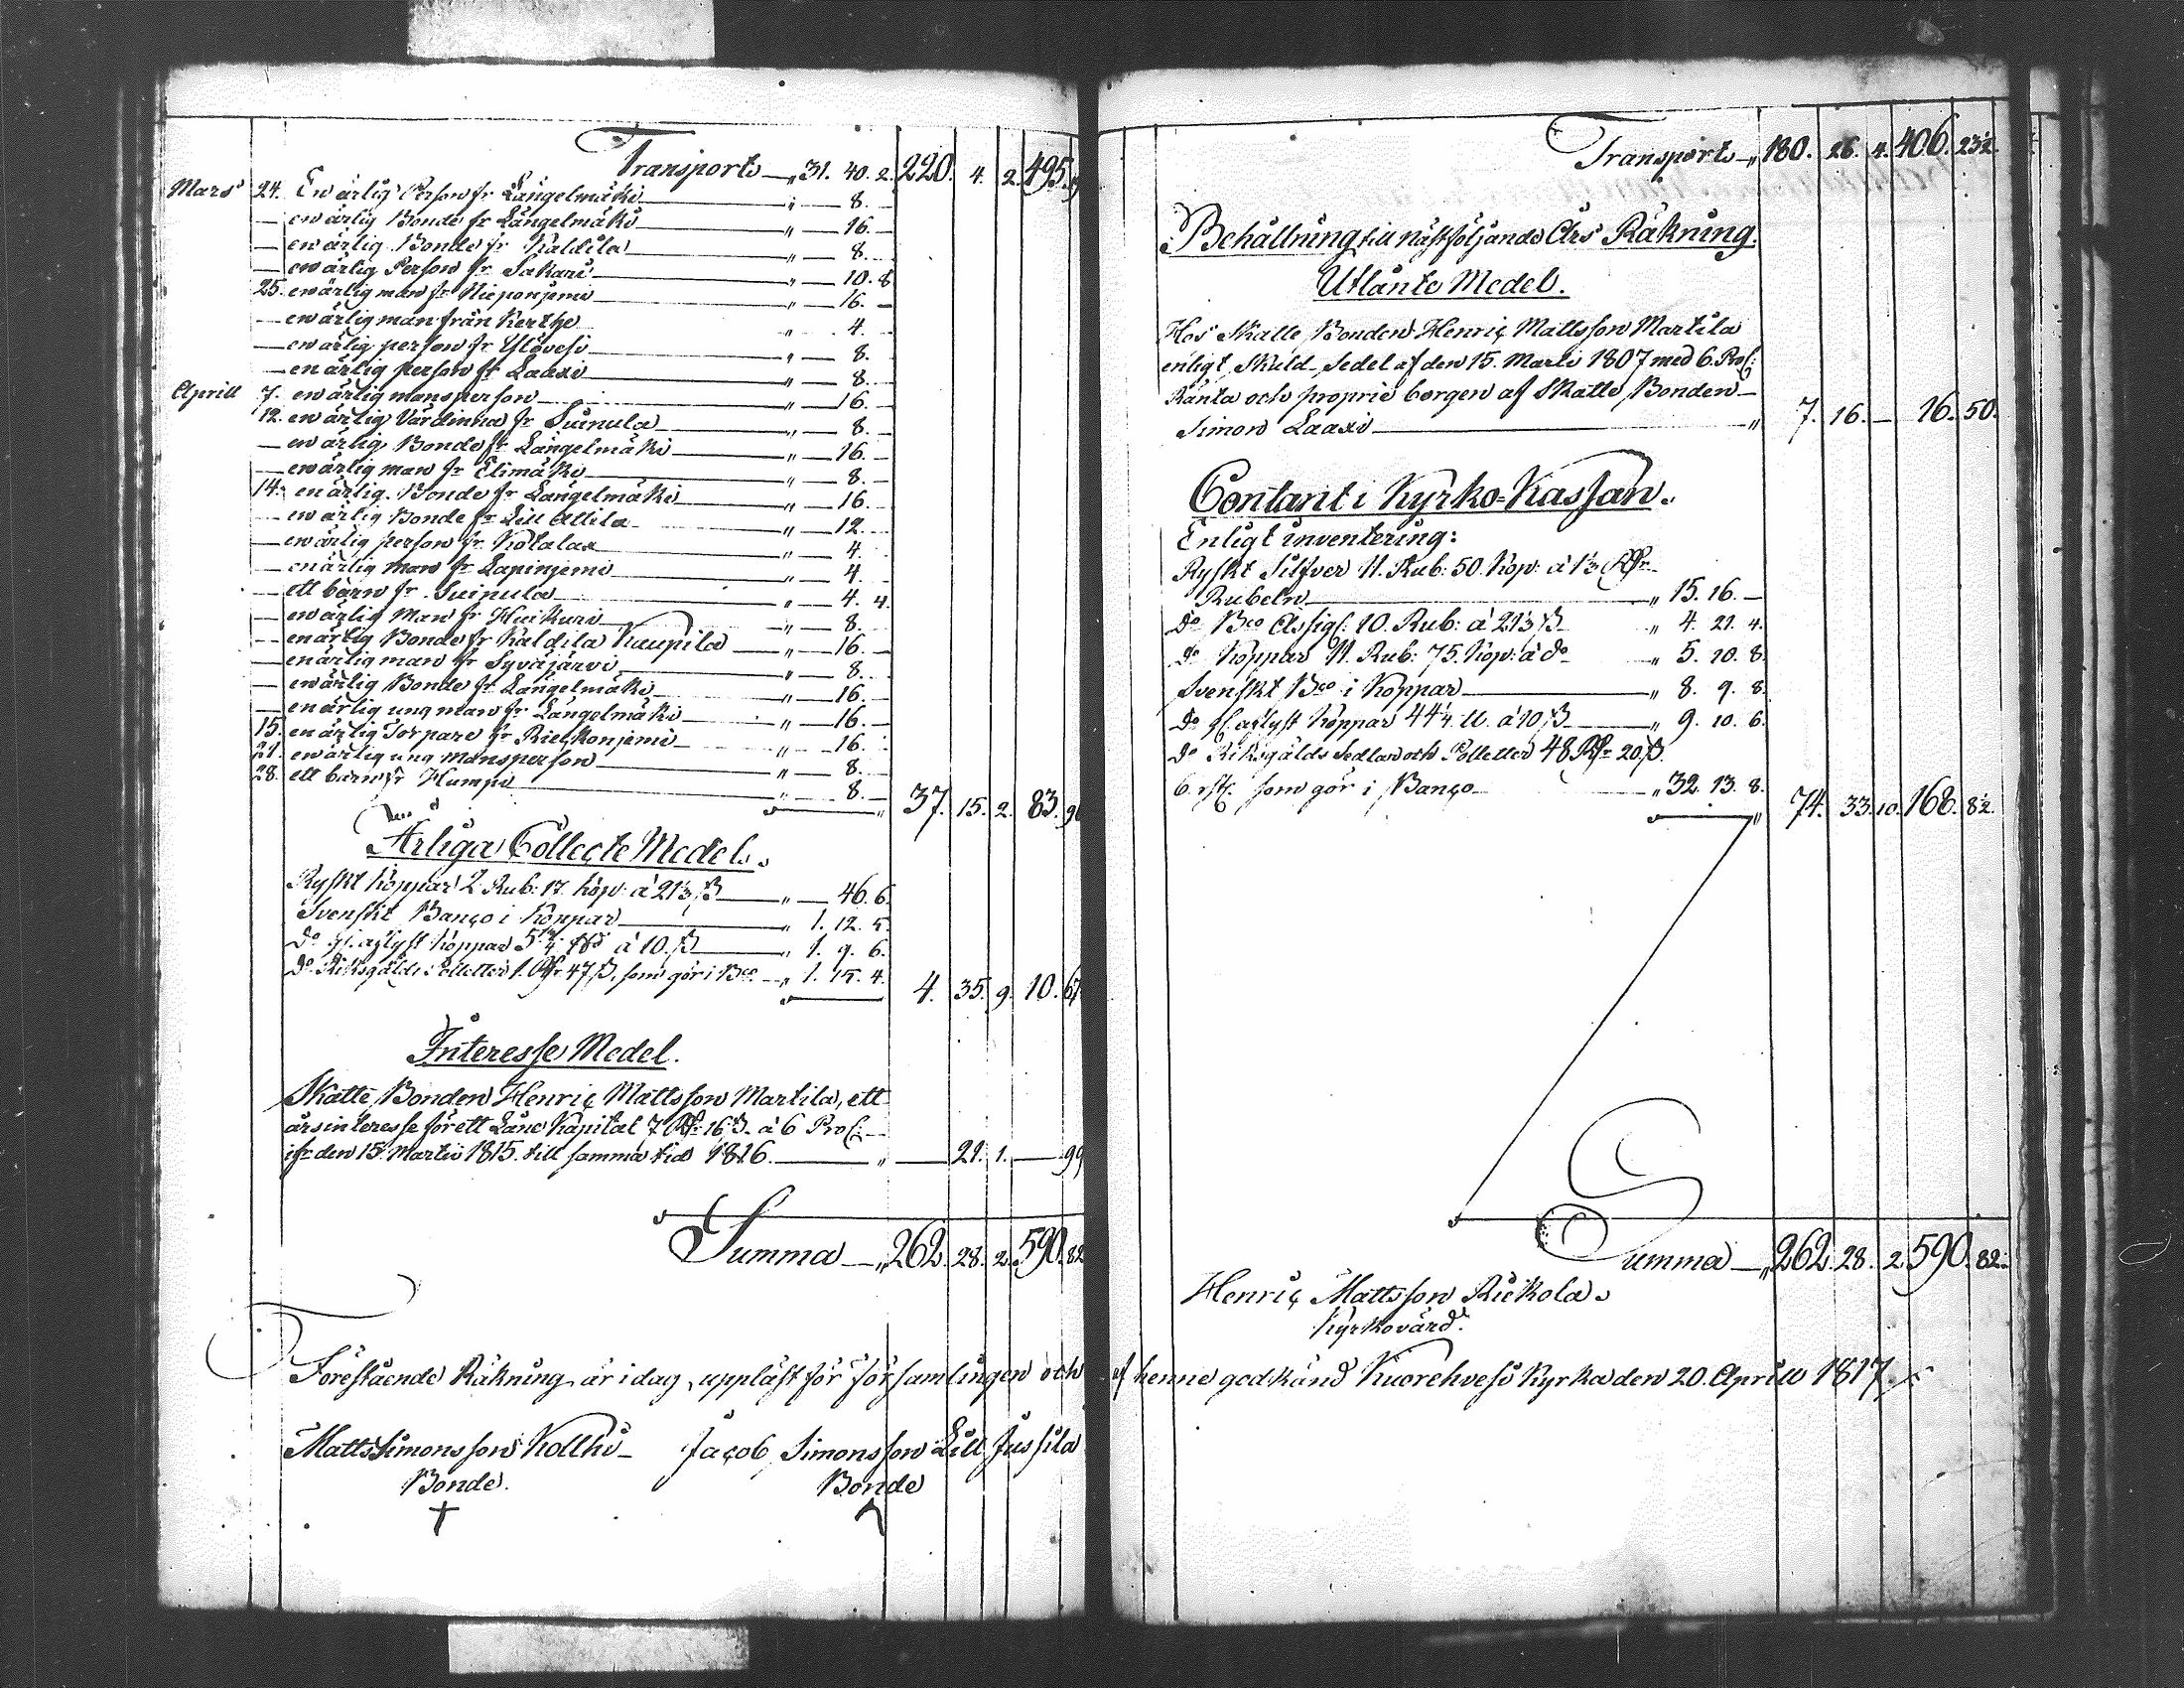 Transport — " 31. 40. 2. 220. 4. 2. 495.
Mars 24. En ärlig Person fr Längelmäki — " — 8. —
— en ärlig Bonde fr Längelmäki — " — 16. —
— en ärlig Bonde fr Kaldila — " — 8. —
— en ärlig Person fr Sakari — " — 10. 8
25. en ärlig man fr Nieponjemi — " — 16. —
— en ärlig man från Kerthe " — 4. —
— en ärlig person fr Ylövesi — " — 8. —
— en ärlig person fr Laasi — " — 8. —
Aprill 7. en ärlig mansperson — " — 16. —
12. en ärlig Värdinna fr Suinula — " — 8. —
— en ärlig Bonde fr Längelmäki — " — 16. —
— en ärlig man fr Elimäki — " — 8. —
14. en ärlig Bonde fr Längelmäki — " — 16. —
— en ärlig Bonde fr Lill Attila — " — 12. —
— en ärlig person fr Kotalax — " — 4. —
— en ärlig man fr Lapinjemi — " — 4. —
— ett barn fr Suinula — " — 4. 4.
— en ärlig Man fr Huikuri — " — 8. —
— en ärlig Bonde fr Kaldila Kaupila — " — 16. —
— en ärlig man fr Syväjärvi — " — 8. —
— en ärlig Bonde fr Längelmäki — " — 16. —
— en ärlig ung man fr Längelmäki — " — 16. —
15. en ärlig Torpare fr Rietkonjemi — " — 16. —
21. en ärlig ung Mansperson — " — 8. —
28. ett barn fr Humpi — " — 8. —
" 37. 15. 2. 83.
Årliga Collecte Medel.
Ryskt Koppar 2 Rub: 17. Kop: à 21⅓ ß — " — 46. 6.
Svenskt Banco i Koppar — " 1. 12. 5.
Do aflyst Koppar à 10. ß — " 1. 9. 6.
Do Riksgälds Polletter 1. Rdr 47 ß, som gör i Bco. — " 1. 15. 4. 4. 35. 9. 10. 67
Interesse Medel.
Skatte Bonden Henric Mattsson Martila, ett
årsinteresse för ett Låne Kapital 7 Rdr 16 ß. à 6 ProC: —
ifr den 15. Martii 1815. till samma tid 1816. — " — 21. 1. — 99
Summa — " 262. 28. 2. 590. 82
Förestående Räkning är i dag uppläst för församlingen och
Matts Simonsson Kollki — Jacob Simonsson Lill Jussila
Bonde. Bonde
Transport — " 180. 26. 4. 406. 23½.
Behållning till nästföljande Års Räkning.
Utlänte Medel.
Hos Skatte Bonden Henric Mattsson Martila
enligt Skuld-Sedel af den 15. Martii 1807 med 6. ProC:
Ränta och proprie borgen af Skatte Bonden —
Simon Laasi — " 7. 16. — 16. 50.
Contant i Kyrko-Kassan.
Enligt inventering:
Ryskt Silfver 11. Rub: 50. Kop: à 1⅓ Rdr
Rubeln — " 15. 16. —
Do Bco Assigt: 10. Rub: à 21⅓ ß — " 4. 21. 4.
Do Koppar 11. Rub: 75. Kop: à do — " 5. 10. 8.
Svenskt Bco i Koppar — " 8. 9. 8.
Do aflyst Koppar 44¼ à 10. ß — " 9. 10. 6.
Do Riksgälds Sedlar och Polletter 48 Rdr 20. ß.
6. rst: som gör i Banco — " 32. 13. 8.
" 74. 33. 10. 168. 8½.
Summa — " 262. 28. 2. 590. 82.
Henric Mattsson Rickola.
Kyrkovärd.
af henne godkänd Kuorehvesi Kyrka den 20. Aprill 1817.